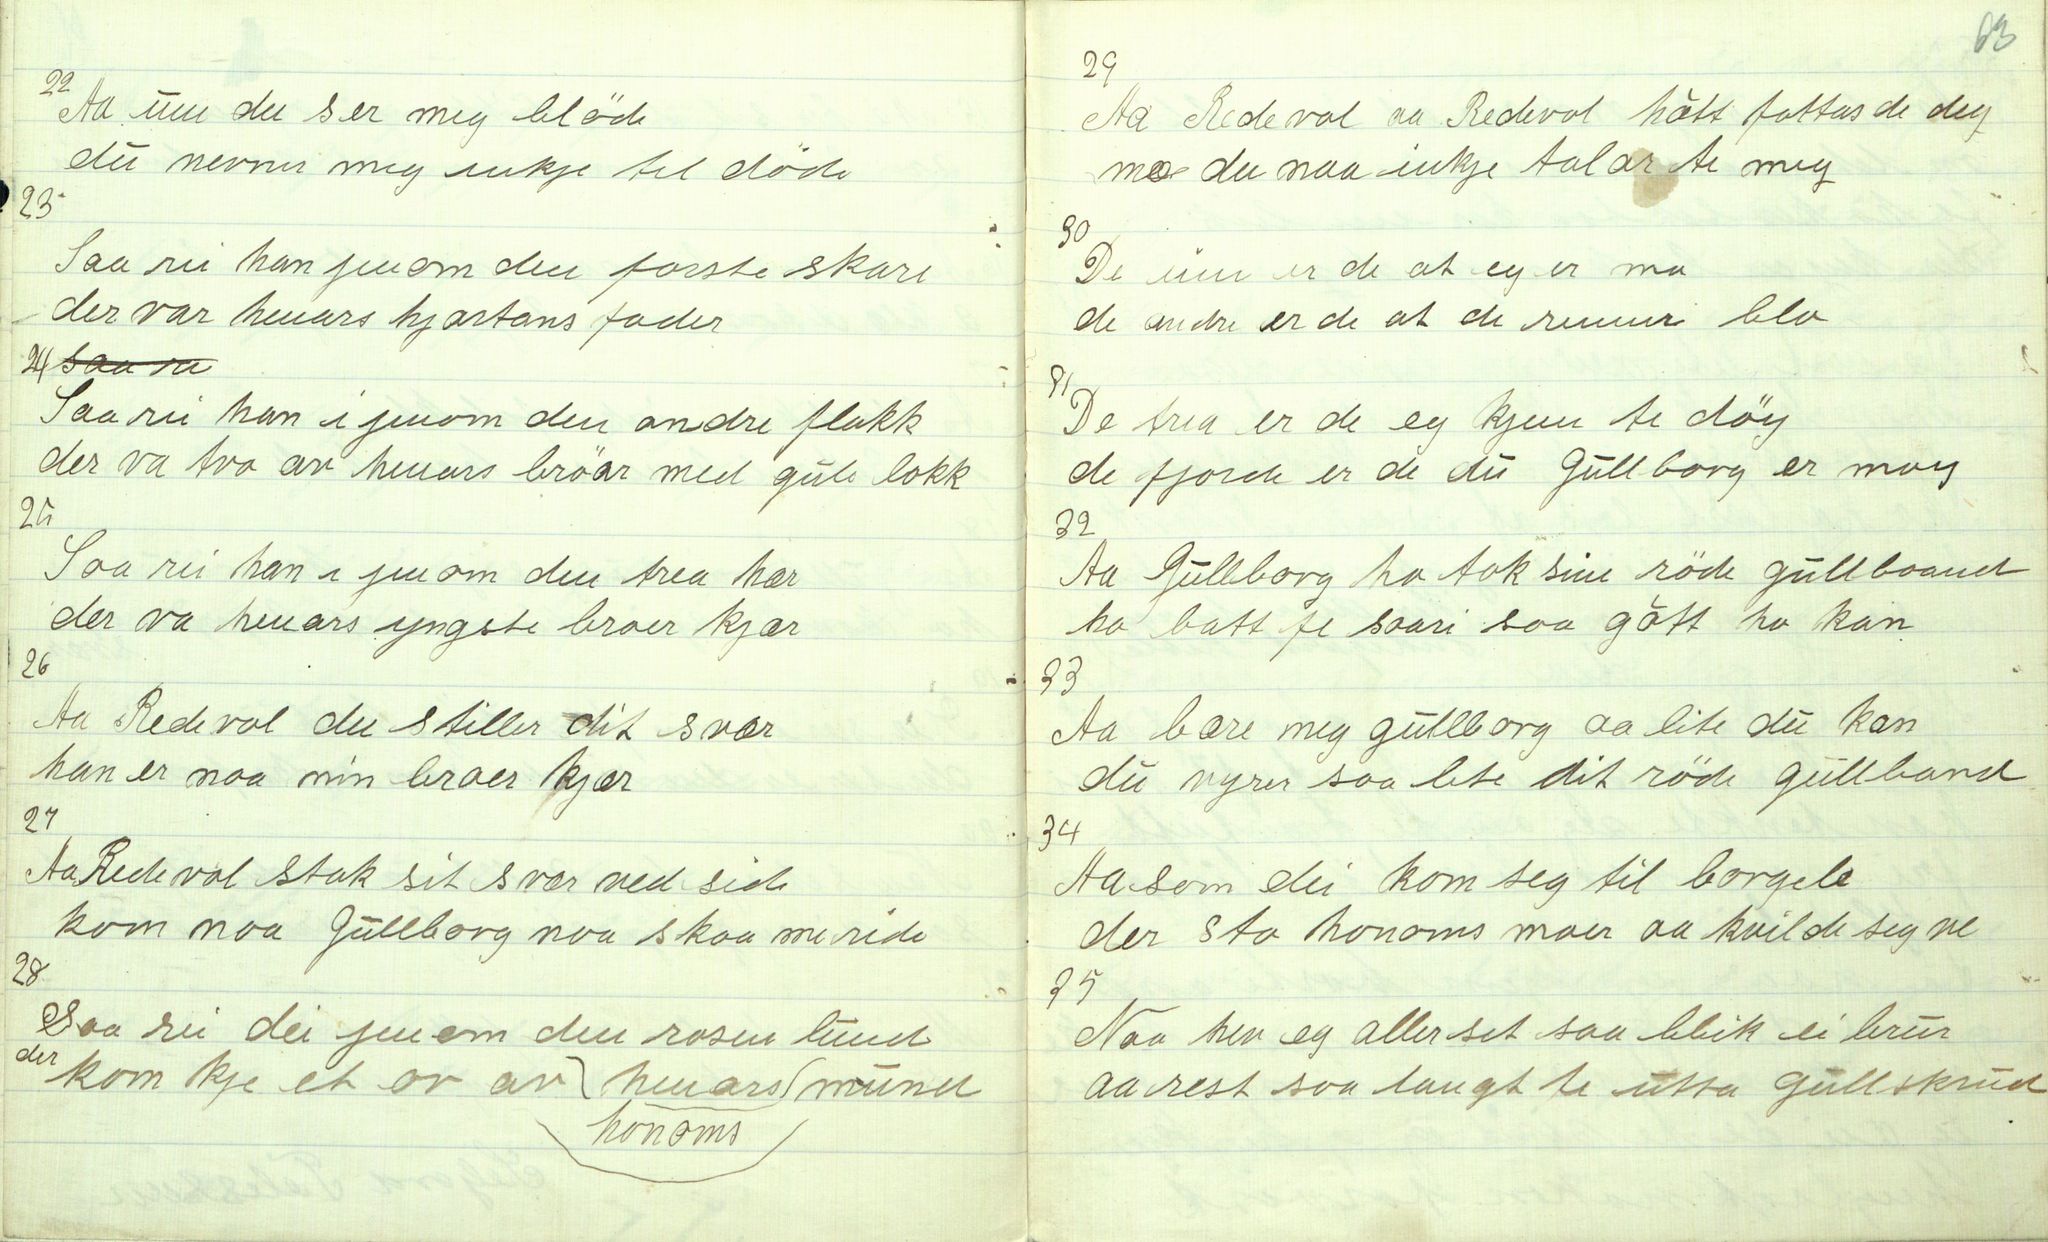 22
Aa um du ser meg bløde
du nevner meg inkje til døde
23
Saa rei han jenom den forste skare
der var hennars hjartans fader
24 saa re
Saa rei han i jenom den andre flakk
der va tvo av hennars brøar med gule lokk
25
Saa rei han i jenom den trea hær
der va hennars yngste broer kjær
26
Aa Redevol du stiller dit svær
han er naa min broer kjær
27
Aa Redevol stak sit svær ved side
kom naa Gullborg naa skaa me ride
28
Saa rei dei jenom den rosen lund
der kom kje et or av hennars mund
honoms
63
29
Aa Redevol aa Redevol hått fattas de deg
mæ du naa inkje talar te meg
30
De eine er de at eg er mo
de andre er de at de renner blo
31
De trea er de eg kjem te døy
de fjorde er de du Gullborg er møy
32
Aa Gullborg ho tok sine røde gullbaand
ho batt fe saari saa gått ho kan
33
Aa bære meg gullborg aa lite du kan
du vyrer saa lite dit røde gullband
34
Aa som dei kom seg til borgele
der sto honoms moer aa kvilde seg ve
35
Naa hev eg aller set saa bleik ei brur
aa rest saa langt te utta gullskrud